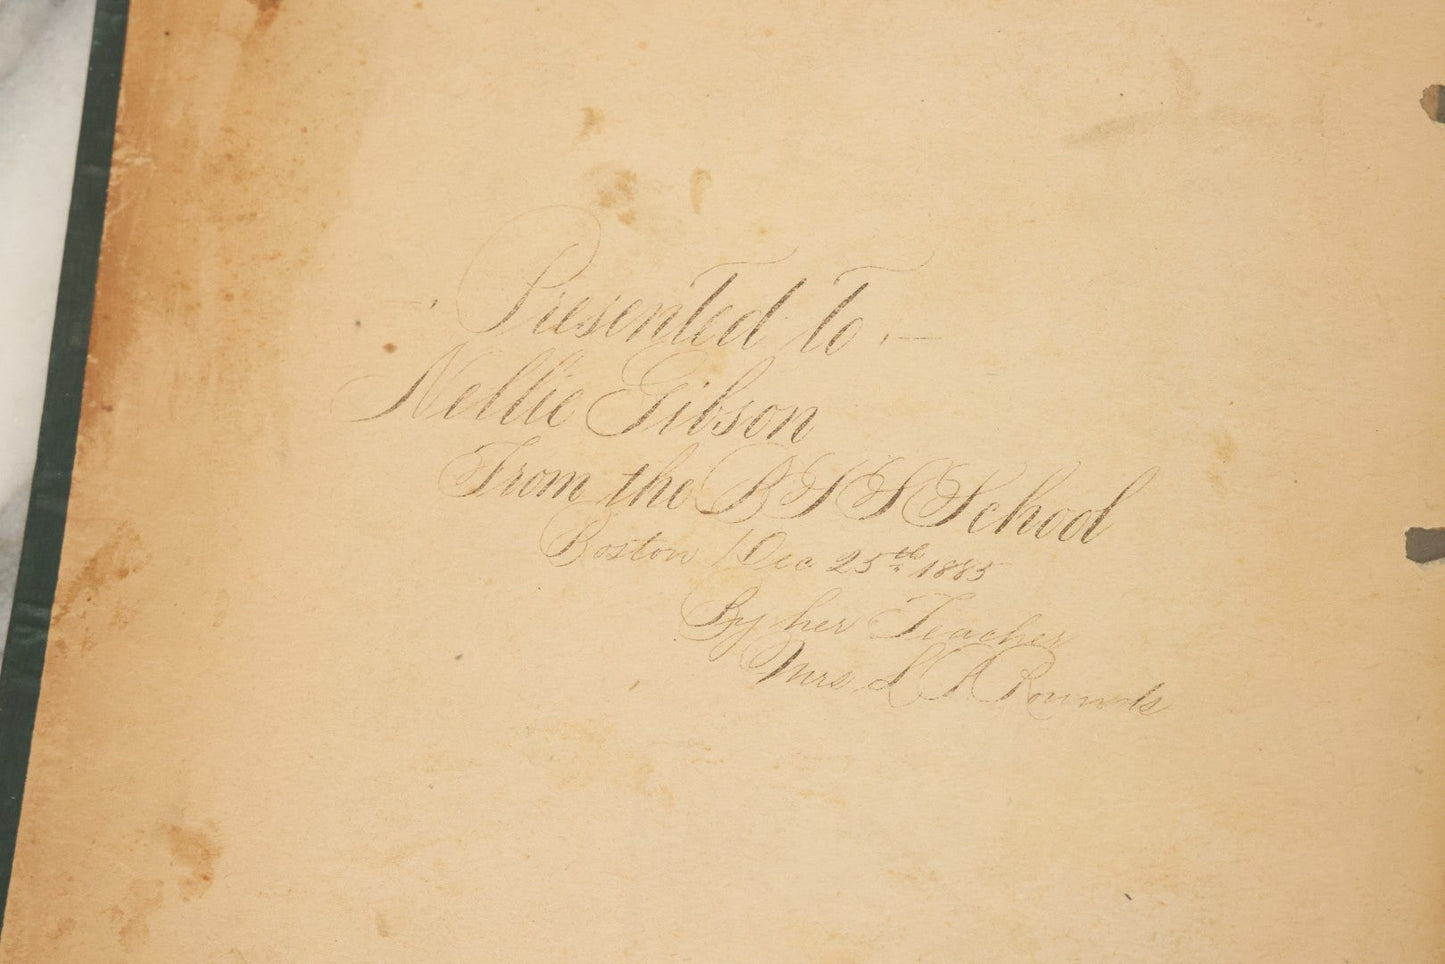 Presented to.—
Nellie Gibson
From the B S S School
Boston Dec 25th 1885
By her Teacher
Mrs L A Rounds